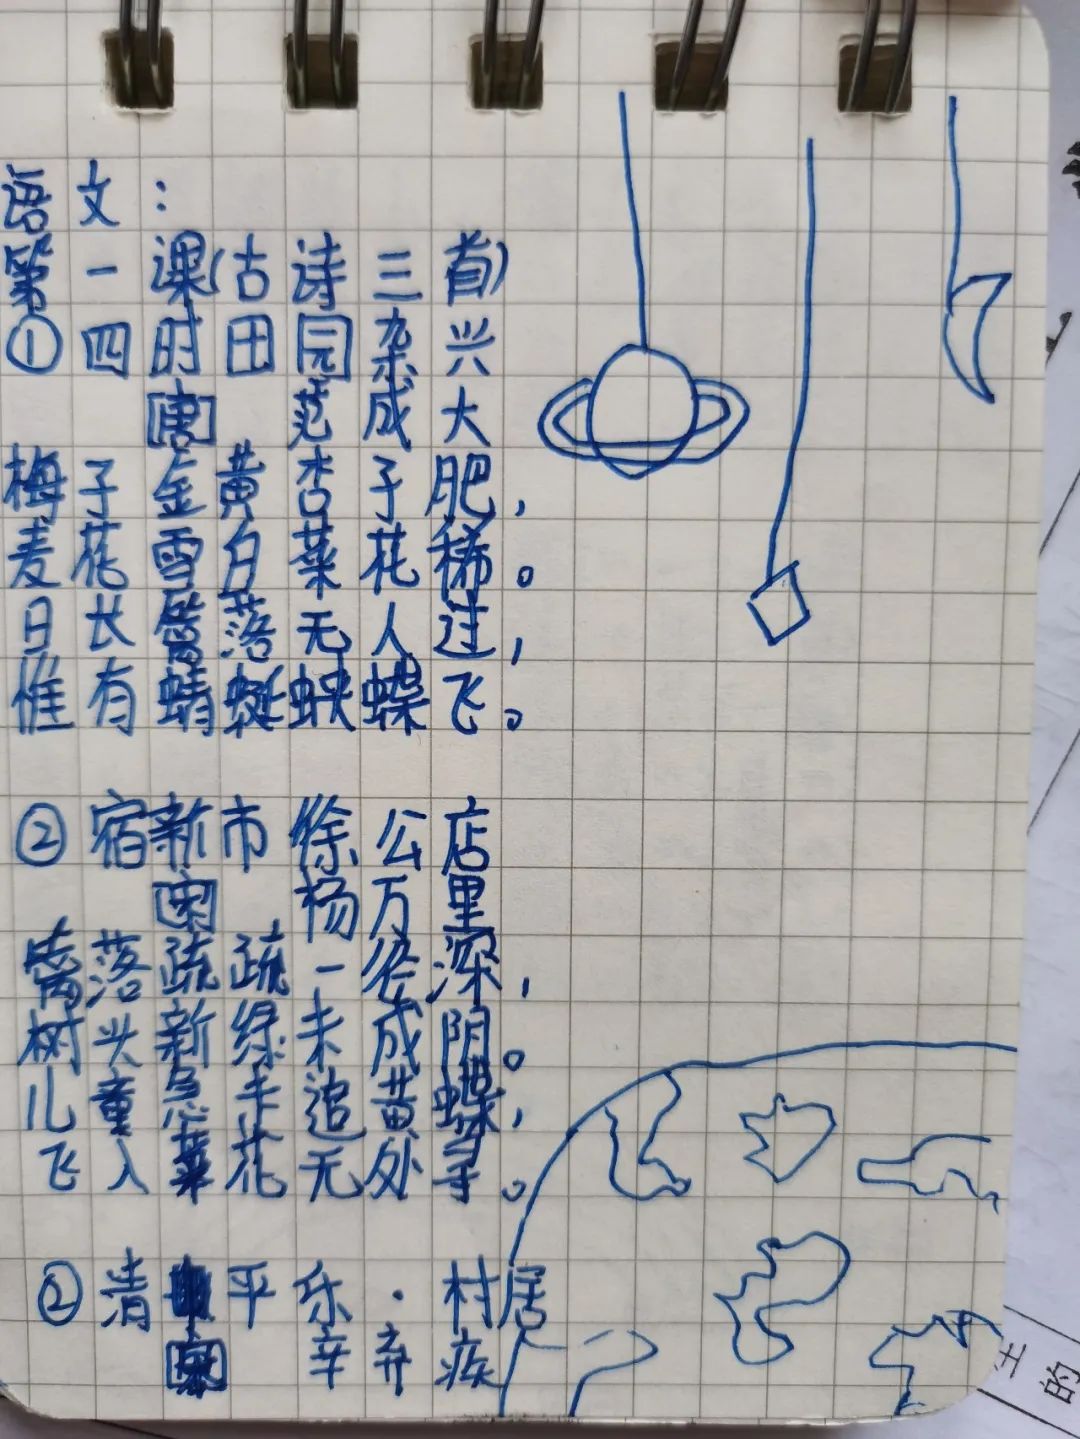 语文：
第一课(古诗三首)
①四时田园杂兴
[唐]范成大
梅子金黄杏子肥，
麦花雪白菜花稀。
日长篱落无人过，
惟有蜻蜓蛱蝶飞。
②宿新市徐公店
[宋]杨万里
篱落疏疏一径深，
树头新绿未成阴。
儿童急走追黄蝶，
飞入菜花无处寻。
②清平乐·村居
[宋]辛弃疾
的